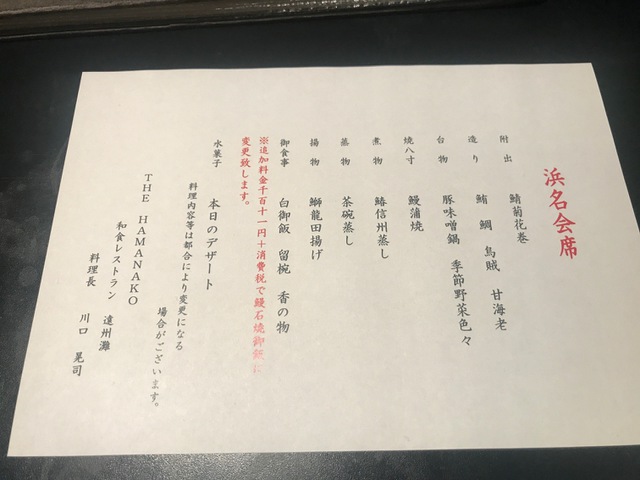 浜名会席
附出 鯖菊花巻
造り 鮪 鯛 烏賊 甘海老
台物 豚味噌鍋 季節野菜色々
焼八寸 鰻蒲焼
煮物 鰆信州蒸し
蒸物 茶碗蒸し
揚物 鰤龍田揚げ
御食事 白御飯 留椀 香の物
※追加料金千百十一円+消費税で鰻石焼御飯に
変更致します。
水菓子 本日のデザート
料理内容等は都合により変更になる
場合がございます。
THE HAMANAKO
和食レストラン 遠州灘
料理長 川口 晃司